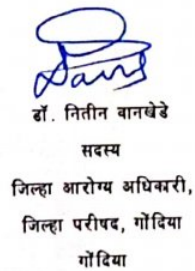 डॉ. नितीन वानखेडे
सदस्य
जिल्हा आरोग्य अधिकारी,
जिल्हा परीषद, गोंदिया
गोंदिया